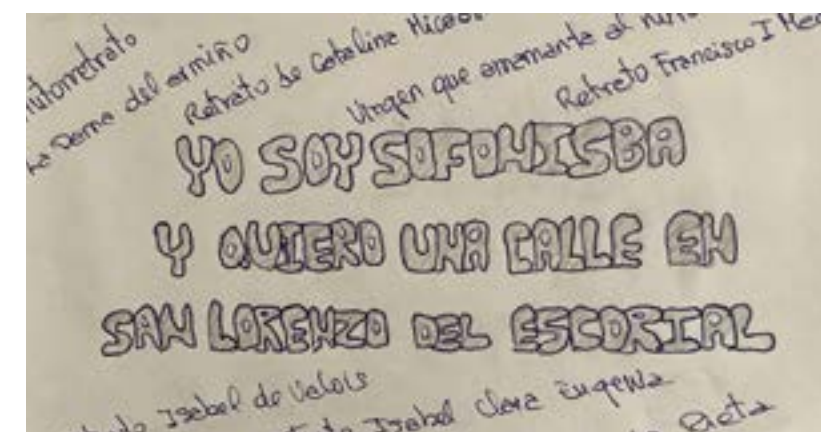 Autorretrato
La Dama del armiño
Retrato de Catalina Micae
Virgen que amamanta al niño
Retrato Francisco I Med
YO SOY SOFONISBA
Y QUIERO UNA CALLE EN
SAN LORENZO DEL ESCORIAL
Isabel de Valois
Isabel Clara Eugenia